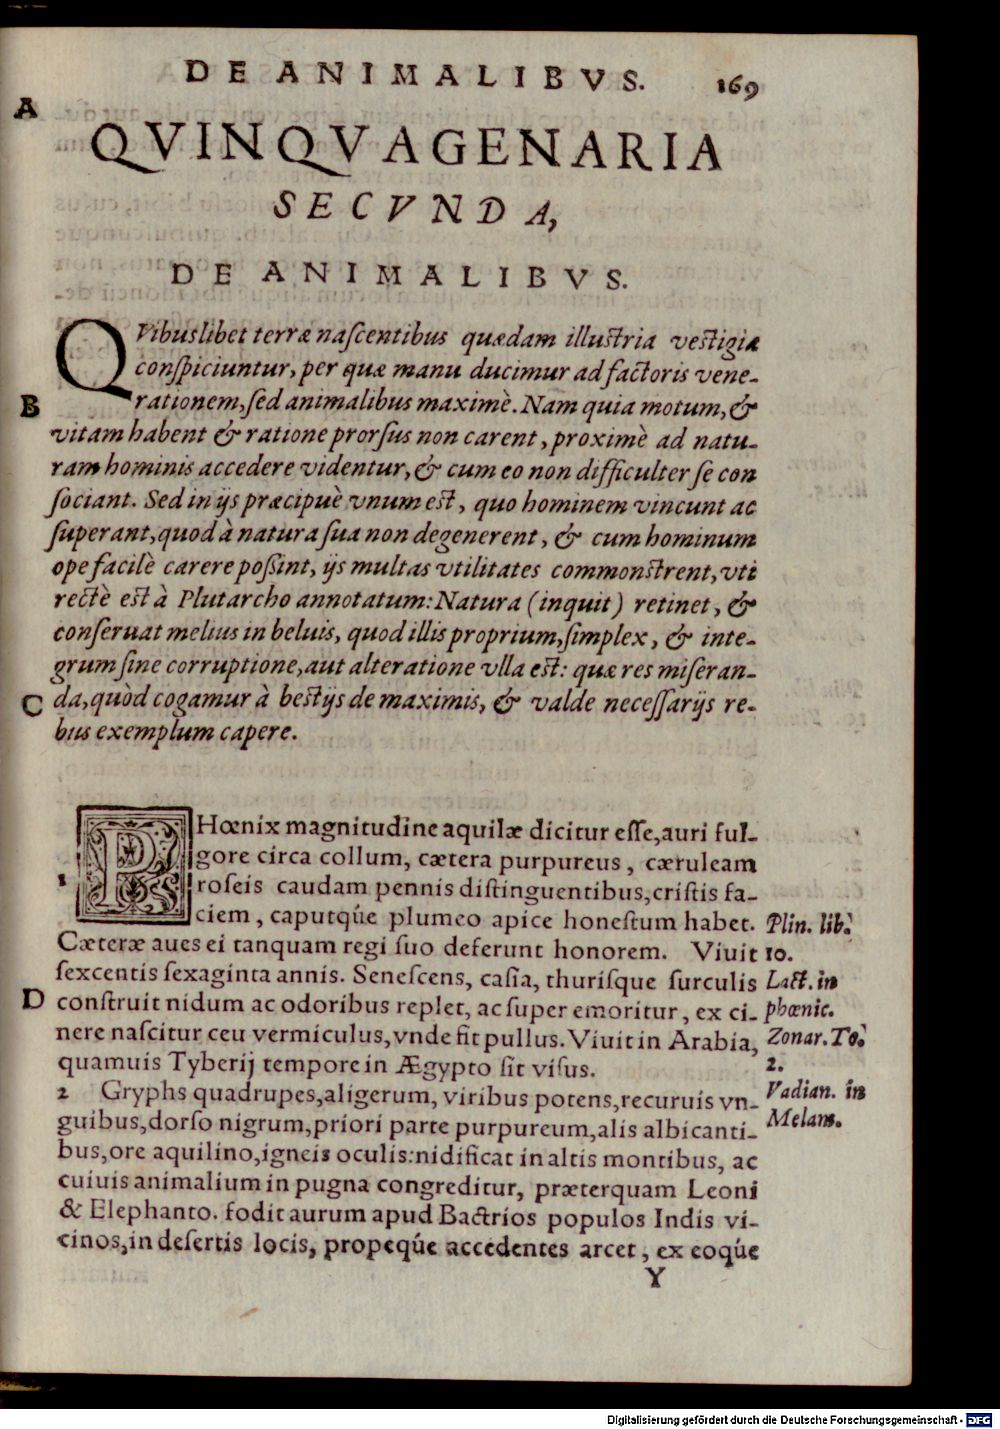 DE ANIMALIBVS. 169
A
QVINQVAGENARIA
SECVNDA,
DE ANIMALIBVS.
QVibuslibet terræ naſcentibus quædam illuſtria veſtigia
conſpiciuntur, per quæ manu ducimur ad factoris vene-
B rationem, ſed animalibus maximè. Nam quia motum, &
vitam habent & ratione prorſus non carent, proximè ad natu-
ram hominis accedere videntur, & cum eo non difficulter ſe con
ſociant. Sed in ijs præcipuè vnum eſt, quo hominem vincunt ac
ſuperant, quod à natura ſua non degenerent, & cum hominum
ope facilè carere poſsint, ijs multas vtilitates commonſtrent, vti
rectè eſt à Plutarcho annotatum: Natura (inquit) retinet, &
conſeruat melius in beluis, quod illis proprium, ſimplex, & inte-
grum ſine corruptione, aut alteratione vlla eſt: quæ res miſeran-
C da, quòd cogamur à beſtijs de maximis, & valde neceſſarijs re-
bus exemplum capere.
PHœnix magnitudine aquilæ dicitur eſſe, auri ful-
gore circa collum, cætera purpureus, cæruleam
1 roſeis caudam pennis diſtinguentibus, criſtis fa-
ciem, caputq́ue plumeo apice honeſtum habet. Plin. lib.
Cæteræ aues ei tanquam regi ſuo deferunt honorem. Viuit 10.
ſexcentis ſexaginta annis. Seneſcens, caſia, thuriſque ſurculis Lact. in
D conſtruit nidum ac odoribus replet, ac ſuper emoritur, ex ci- phœnic.
nere naſcitur ceu vermiculus, vnde fit pullus. Viuit in Arabia, Zonar. To.
quamuis Tyberij tempore in Ægypto ſit viſus. 2.
2 Gryphs quadrupes, aligerum, viribus potens, recuruis vn- Vadian. in
guibus, dorſo nigrum, priori parte purpureum, alis albicanti- Melam.
bus, ore aquilino, igneis oculis: nidificat in altis montibus, ac
cuiuis animalium in pugna congreditur, præterquam Leoni
& Elephanto. fodit aurum apud Bactrios populos Indis vi-
cinos, in deſertis locis, propeq́ue accedentes arcet, ex eoq́ue
Y
Digitalisierung gefördert durch die Deutsche Forschungsgemeinschaft - DFG